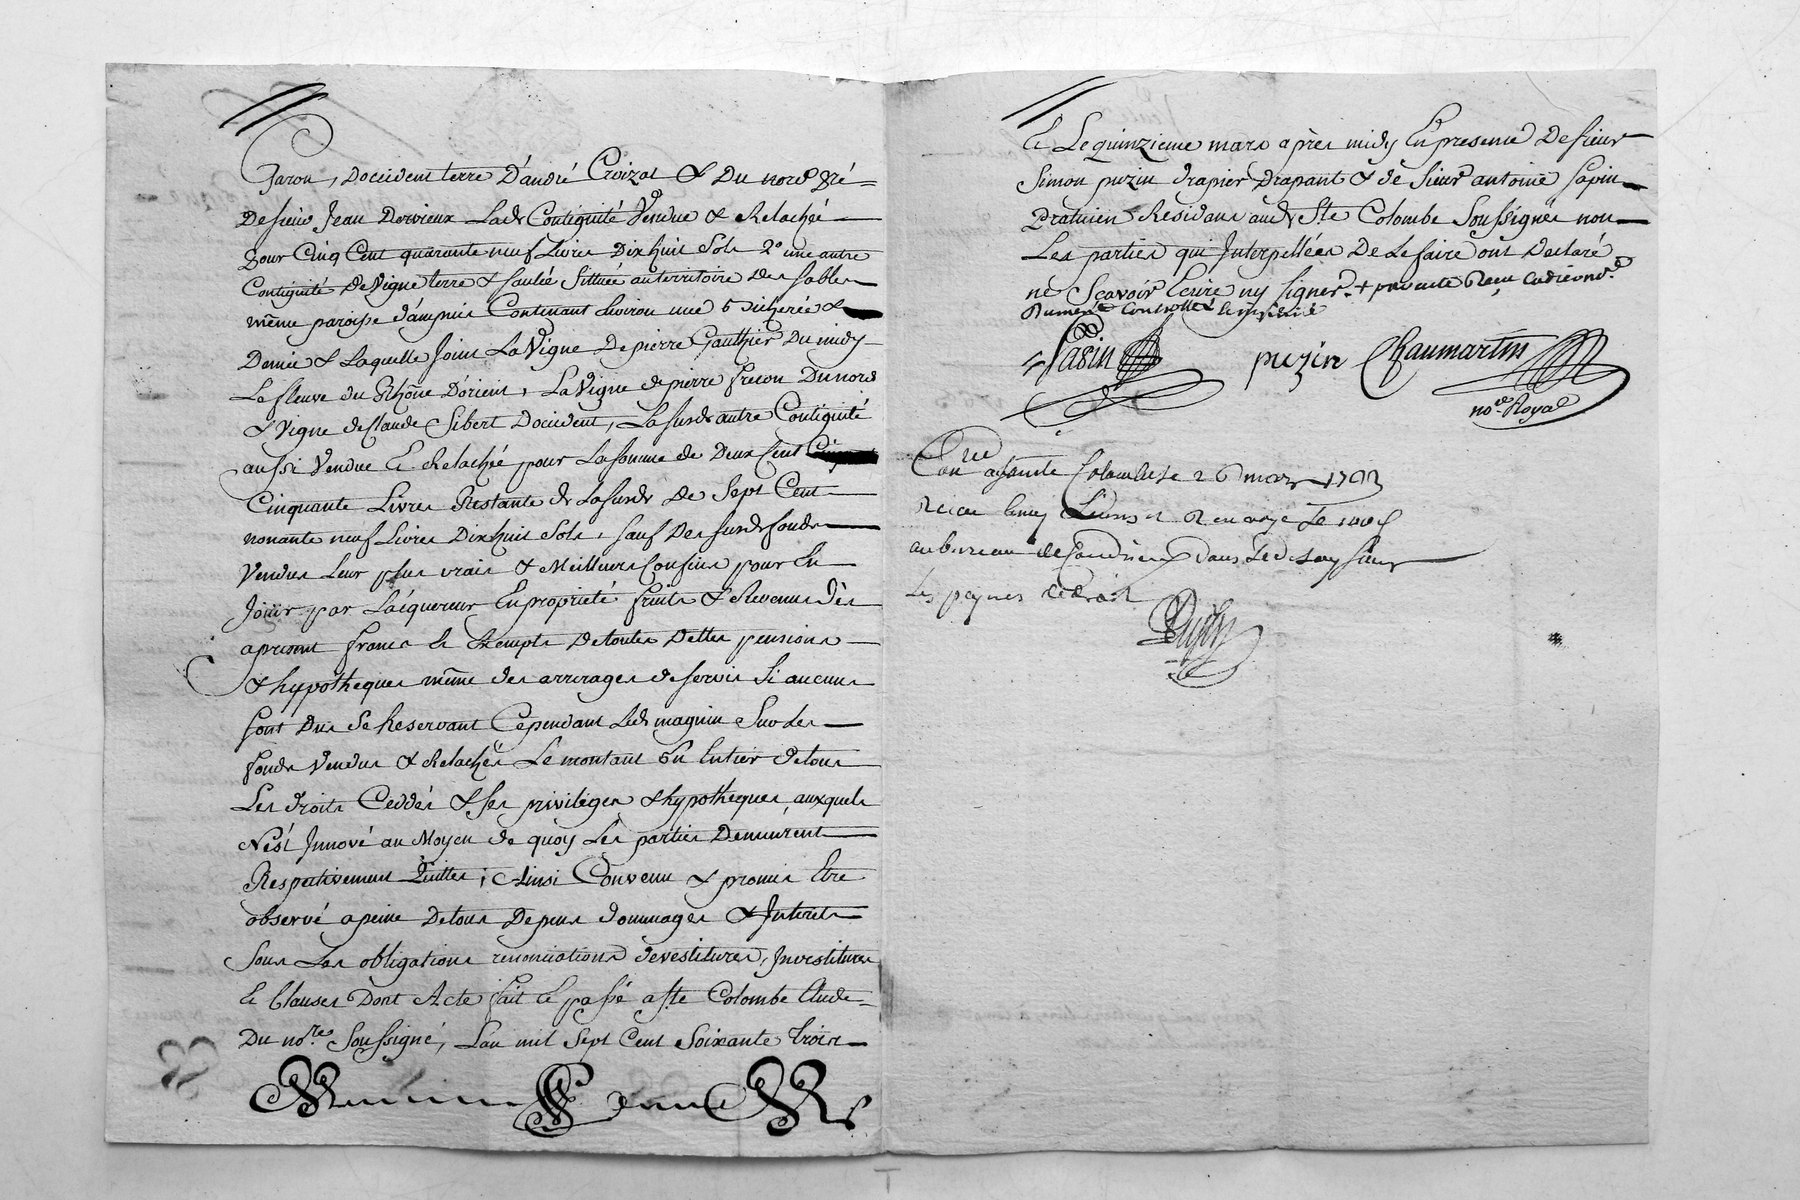 Jaron, Doccident terre D'andré Croizat & Du nord Pré
De sieur Jean Dervieux Lad. Contiguité Vendue & Relachée
Pour Cinq Cent quarante neuf Livres Dixhuit Sols 2° une autre
Contiguité De Vigne terre & saulée Sittuée au territoire Des sables
même paroisse d'ampuis Contenant Environ une bicherée &
Demie & Laquelle Joint La Vigne De pierre Gauthier Du midy
Le fleuve du Rhône D'orient, La Vigne de pierre frecon Du nord
& Vigne de Claude Sibert Doccident, La susd. autre Contiguité
aussi Vendue Et Relachée pour La somme de Deux Cent
Cinquante Livres Restante de La susd. De Sept Cent
nonante neuf Livres Dixhuit Sols, sauf Des susd. fonds
Vendus Leur plus vrais & Meilleurs Confins pour En
Joüir par L'acquereur En proprieté fruits & Revenus Dès
apresent francs Et Exempts De toutes Dettes pensions
& hypotheques même des arrerages de servis Si aucuns
sont Dus Se Reservant Cependant Led. magnin Sur Les
fonds Vendus & Relachés Le montant En Entier De tous
Les droits Ceddés & ses privileges & hypotheques, auxquels
N'est Innové au Moyen de quoy Les parties Demeurent
Respectivement Quittes; Ainsi Convenu & promis Etre
observé a peine De tous Depens dommages & Interets
Sous Les obligations renonciations devestitures, Investitures
Et Clauses Dont Acte fait Et passé a Ste Colombe Etude
Du no.re Soussigné, L'an mil Sept Cent Soixante trois
Et Le quinzieme mars après midy En presence De sieur
Simon puzin drapier Drapant & de Sieur antoine sapin
Praticien Residans aud. Ste Colombe Soussignés non
Les parties qui Interpellées De Le faire ont Declaré
ne Scavoir Ecrire ny signer
Sapin puzin Chaumartin
no.re Royal
a sainte Colombe le 26 mars
au bureau de Condrieu dans